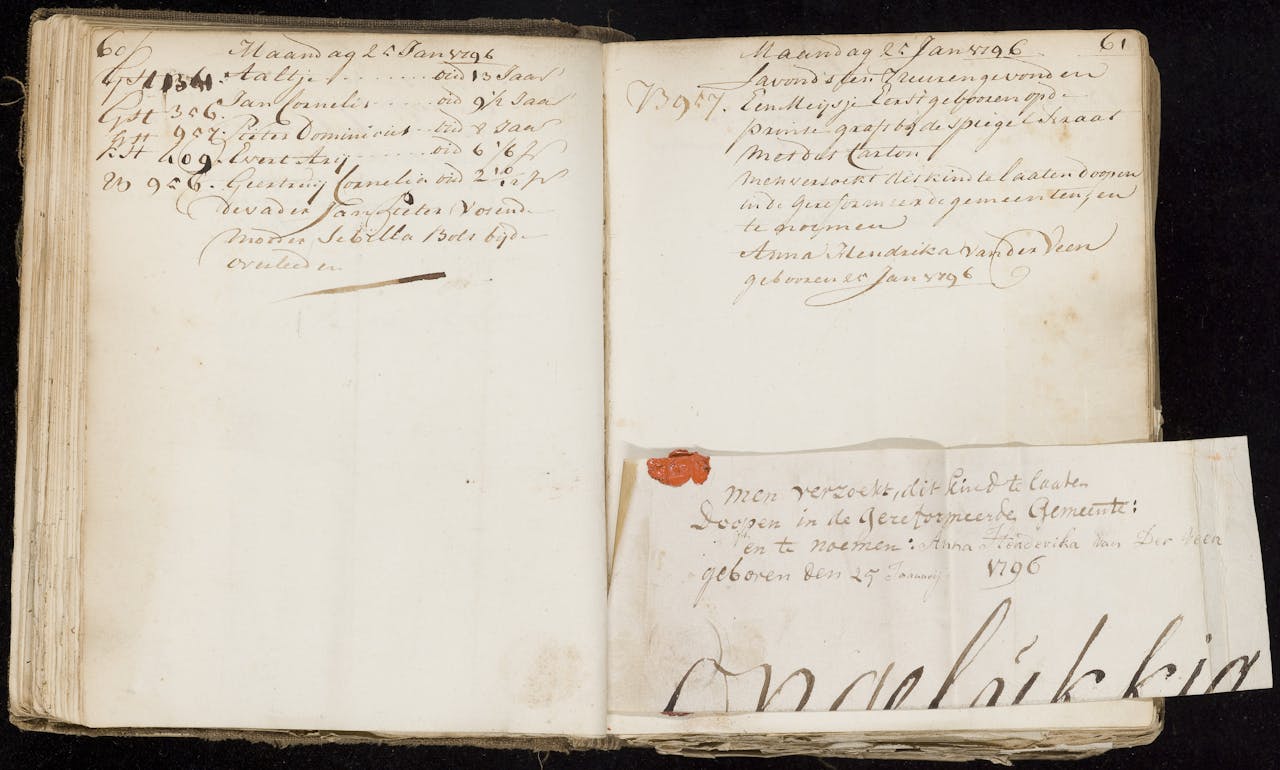 60
Maandag 25 Jan 1796
Aaltje ........ oud 13 Jaar
356. Jan Cornelis .... oud 9 1/2 Jaar
957. Pieter Dominicus .. oud 8 Jaar
609. Evert Arij ........ oud 6 1/6 Jr
956. Geertruij Cornelia oud 2 10/12 Jr
de vader Jan Pieter
moeder Sebilla Bols bijde
overleeden
61
Maandag 25 Jan 1796
Savonds ten 7 euren gevonden
B 957. Een Meijsje Eerst gebooren op de
prinse graft bij de spiegelstraat
met dit Carton
men versoekt dit kind te laaten doopen
in de gereformeerde gemeenten, en
te noemen
Anna Hendrika van der Veen
gebooren 25 Jan 1796
men verzoekt, dit kind te laaten
Doopen in de Gereformeerde Gemeente:
en te noemen: Anna Henderika Van Der Veen
geboren den 25 Januarij 1796
ongelukkig